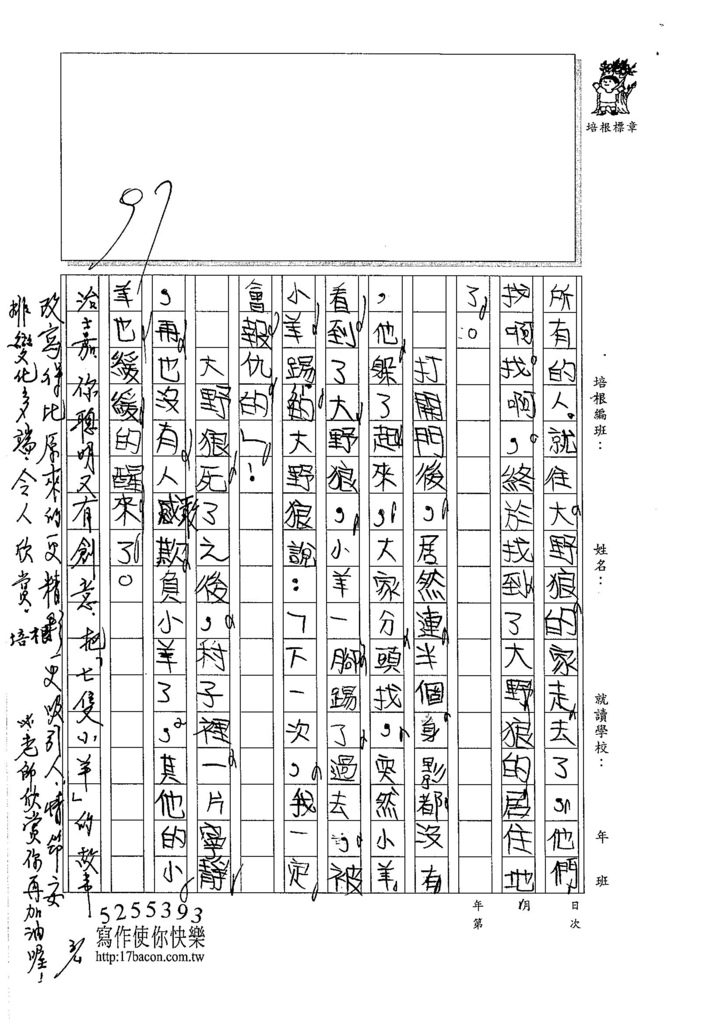 培根標章
培根編班：
姓名：
就讀學校：
年 班
年 月 日
第 次
所有的人就往大野狼的家走去了，他們
找啊找啊，終於找到了大野狼的居住地
了。
打開門後，居然連半個身影都沒有
，他躲了起來，大家分頭找，突然小羊
看到了大野狼，小羊一腳踢了過去，被
小羊踢的大野狼說：「下一次，我一定
會報仇的」！
大野狼死了之後，村子裡一片寧靜
，再也沒有人敢欺負小羊了，其他的小
羊也緩緩的醒來了。
97
治嘉你聰明又有創意，把「七隻小羊」的故事
改寫得比原來的更精彩，更吸引人，情節安
排變化多端，令人欣賞。
培根 老師欣賞你再加油喔！
5255393
寫作使你快樂
http:17bacon.com.tw